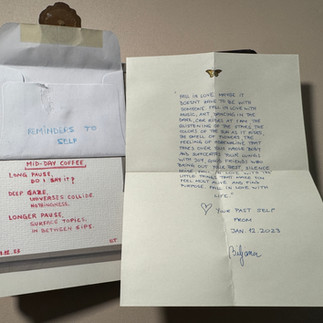 REMINDERS TO
SELF
MID-DAY COFFEE
LONG PAUSE,
DO I SAY IT?
DEEP GAZE,
UNIVERSES COLLIDE.
NOTHINGNESS.
LONGER PAUSE,
SURFACE TOPICS,
IN BETWEEN SIPS.
"FALL IN LOVE. MAYBE IT
DOESN'T HAVE TO BE WITH
SOMEONE. FALL IN LOVE WITH
MUSIC, ART, DANCING IN THE
DARK, CAR RIDES AT 1 AM, THE
GLISTENING OF THE STARS, THE
COLORS OF THE SKY AS IT RISES,
THE SMELL OF FLOWERS, THE
FEELING OF ADRENALINE THAT
TAKES OVER YOUR WHOLE BODY
AND SURROUNDS YOUR BONES
WITH JOY, GOOD FRIENDS WHO
BRING OUT YOUR BEST, SILENCE
FALL IN LOVE WITH THE
LITTLE THINGS THAT MAKE YOU
FEEL MOST ALIVE AND FIND
PURPOSE. FALL IN LOVE WITH
LIFE."
YOUR PAST SELF
FROM
JAN. 12. 2023